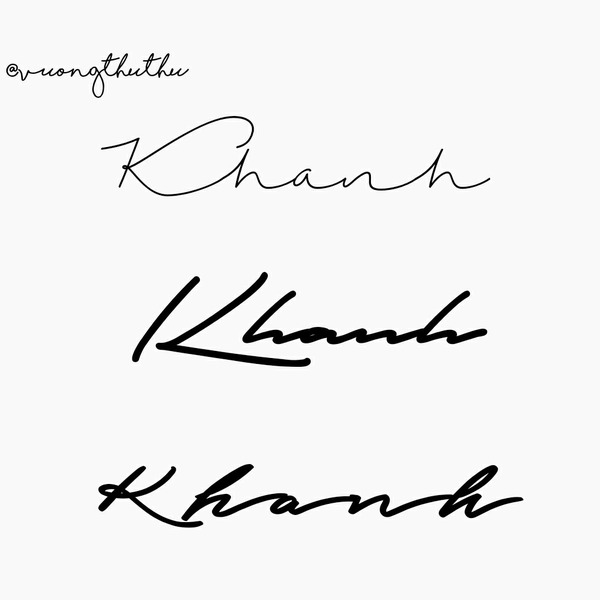 @vuongthuthu
Khanh
Khanh
Khanh